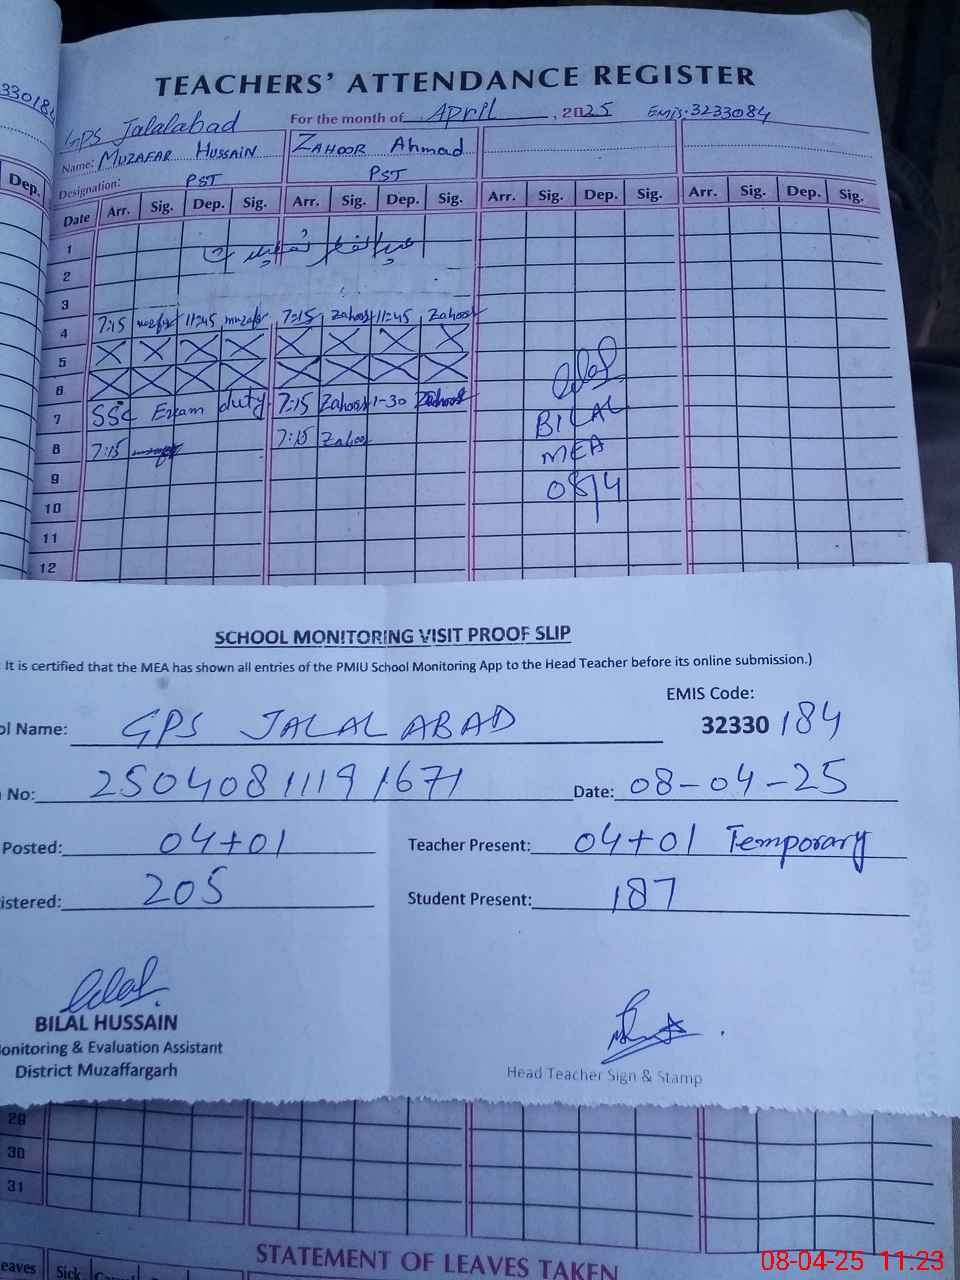 330184
Dep.
TEACHERS' ATTENDANCE REGISTER
GPS Jalalabad For the month of April, 2025 Emis:3233084
Name: MUZAFAR HUSSAIN ZAHOOR Ahmad
Designation: PST PST
Date Arr. Sig. Dep. Sig. Arr. Sig. Dep. Sig. Arr. Sig. Dep. Sig. Arr. Sig. Dep. Sig.
1
2
3
4 7:15 muzafar 11:45 muzafar 7:15 Zahoor 11:45 Zahoor
5 X X X X X X X X
6 X X X X X X X X
7 SSC Exam duty 7:15 Zahoor 1-30 Zahoor
8 7:15 7:15 Zahoor
Bilal
BILAL
MEA
08/4
9
10
11
12
SCHOOL MONITORING VISIT PROOF SLIP
It is certified that the MEA has shown all entries of the PMIU School Monitoring App to the Head Teacher before its online submission.)
EMIS Code:
ol Name: GPS JALALABAD 32330 184
No: 25040811191671 Date: 08-04-25
Posted: 04+01 Teacher Present: 04+01 Temporary
istered: 205 Student Present: 187
Bilal
BILAL HUSSAIN
onitoring & Evaluation Assistant
District Muzaffargarh
Head Teacher Sign & Stamp
29
30
31
STATEMENT OF LEAVES TAKEN
eaves Sick
08-04-25 11:23